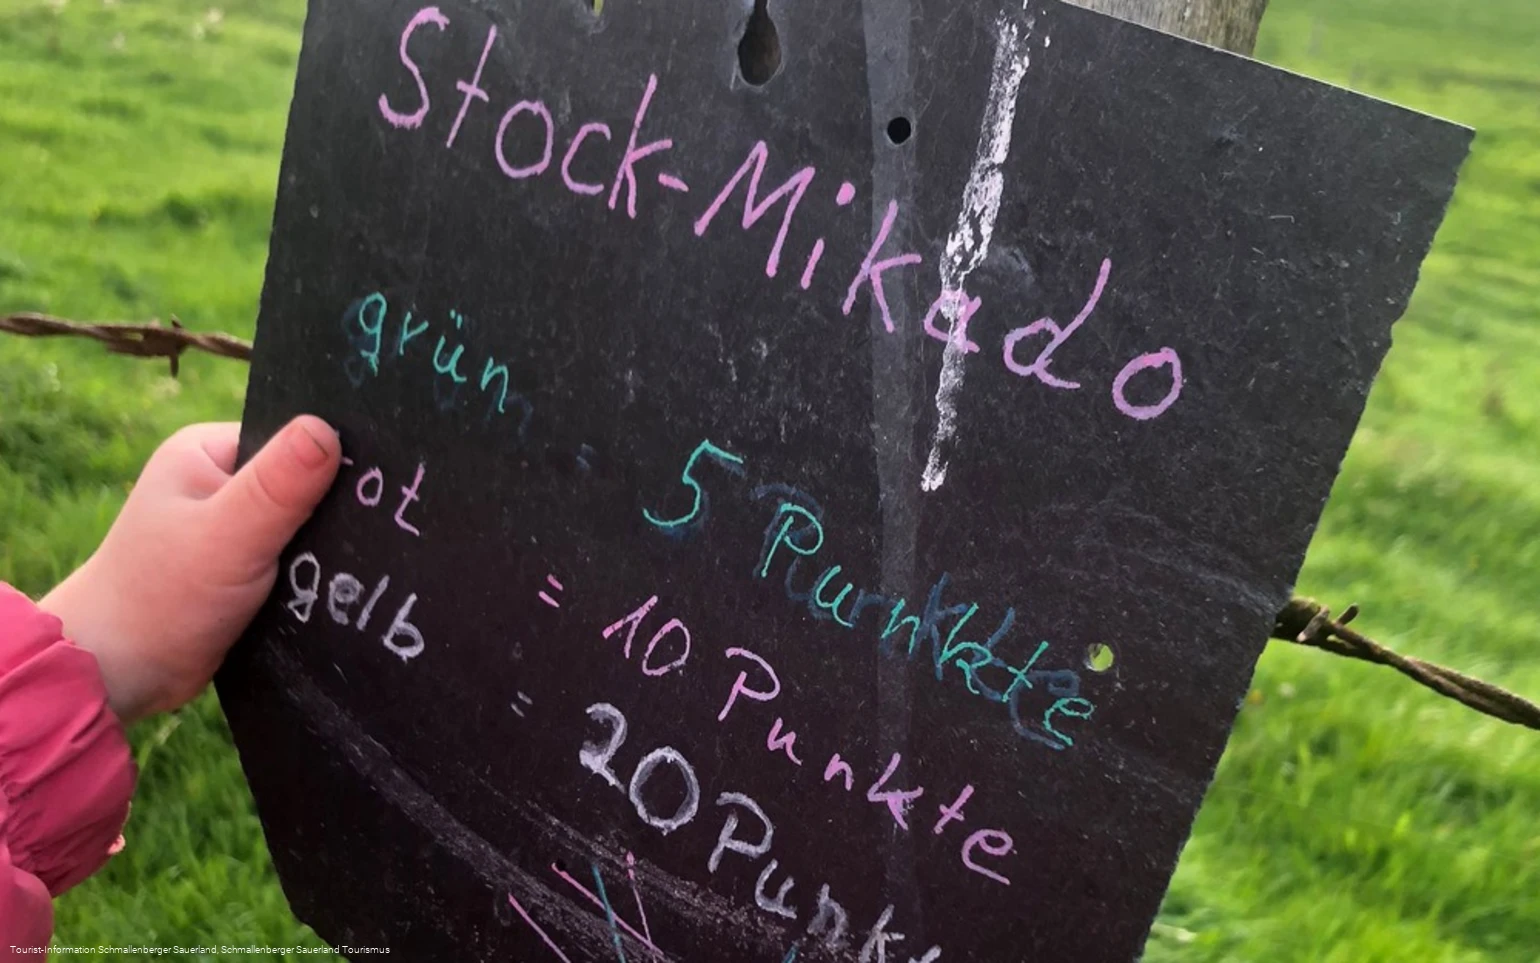 Stock-Mikado
grün = 5 Punkte
rot = 10 Punkte
gelb = 20 Punkte
Tourist-Information Schmallenberger Sauerland, Schmallenberger Sauerland Tourismus